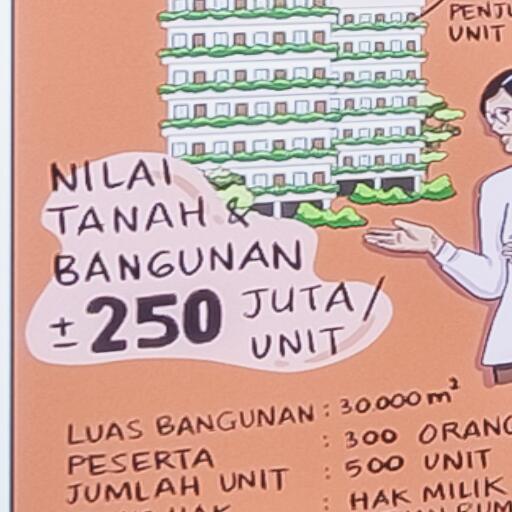 PENJU
UNIT
NILAI
TANAH &
BANGUNAN
± 250 JUTA/
UNIT
LUAS BANGUNAN : 30.000 m²
PESERTA : 300 ORANG
JUMLAH UNIT : 500 UNIT
HAK : HAK MILIK